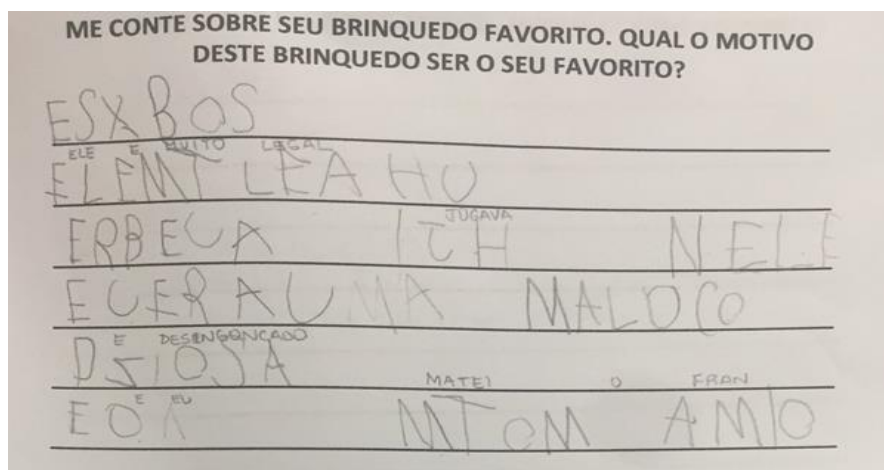 ME CONTE SOBRE SEU BRINQUEDO FAVORITO. QUAL O MOTIVO
DESTE BRINQUEDO SER O SEU FAVORITO?
ESXBOS
ELE E MUITO LEGAL
ELEMT LEAHU
JUGAVA
ERBECA ITH NELE
ECERAUMA MALOCO
E DESENGONCADO
DSIOJA
E EU MATEI O FRAN
EOA MTOM AMIO